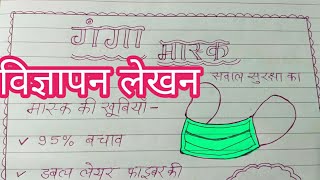 गंगा
मास्क
विज्ञापन लेखन
सवाल सुरक्षा का
मास्क की खूबियाँ -
✓ 95% बचाव
✓ डबल लेयर फाइबर की